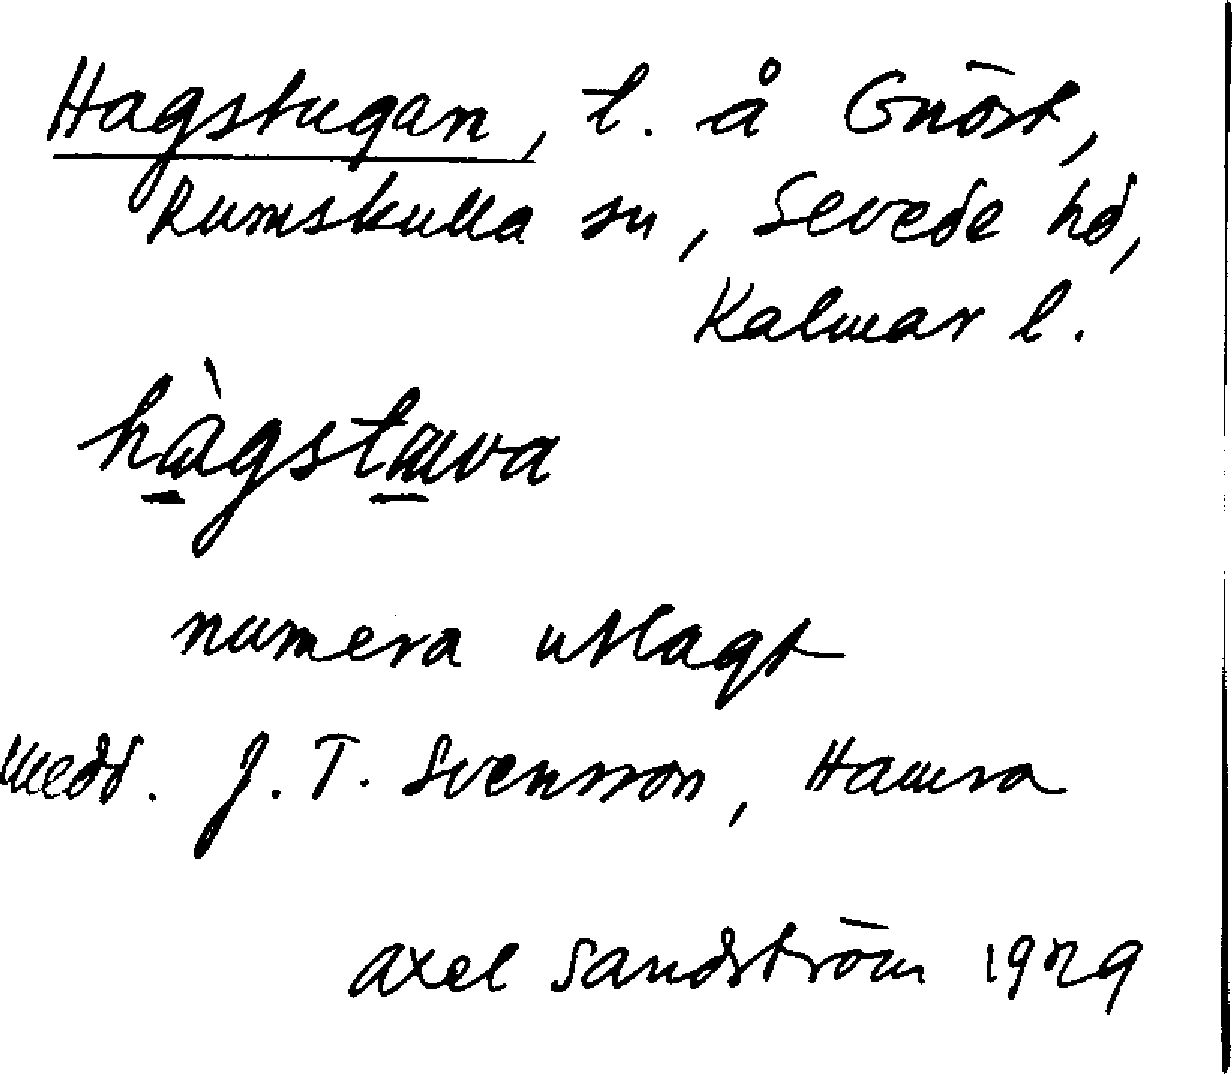 Hagstugan, t. å Gnöst,
Rumskulla sn, Sevede hd,
Kalmar l.
hàgstuva
numera utlagt
Medd. J. T. Svensson, Hamra
Axel Sandström 1929